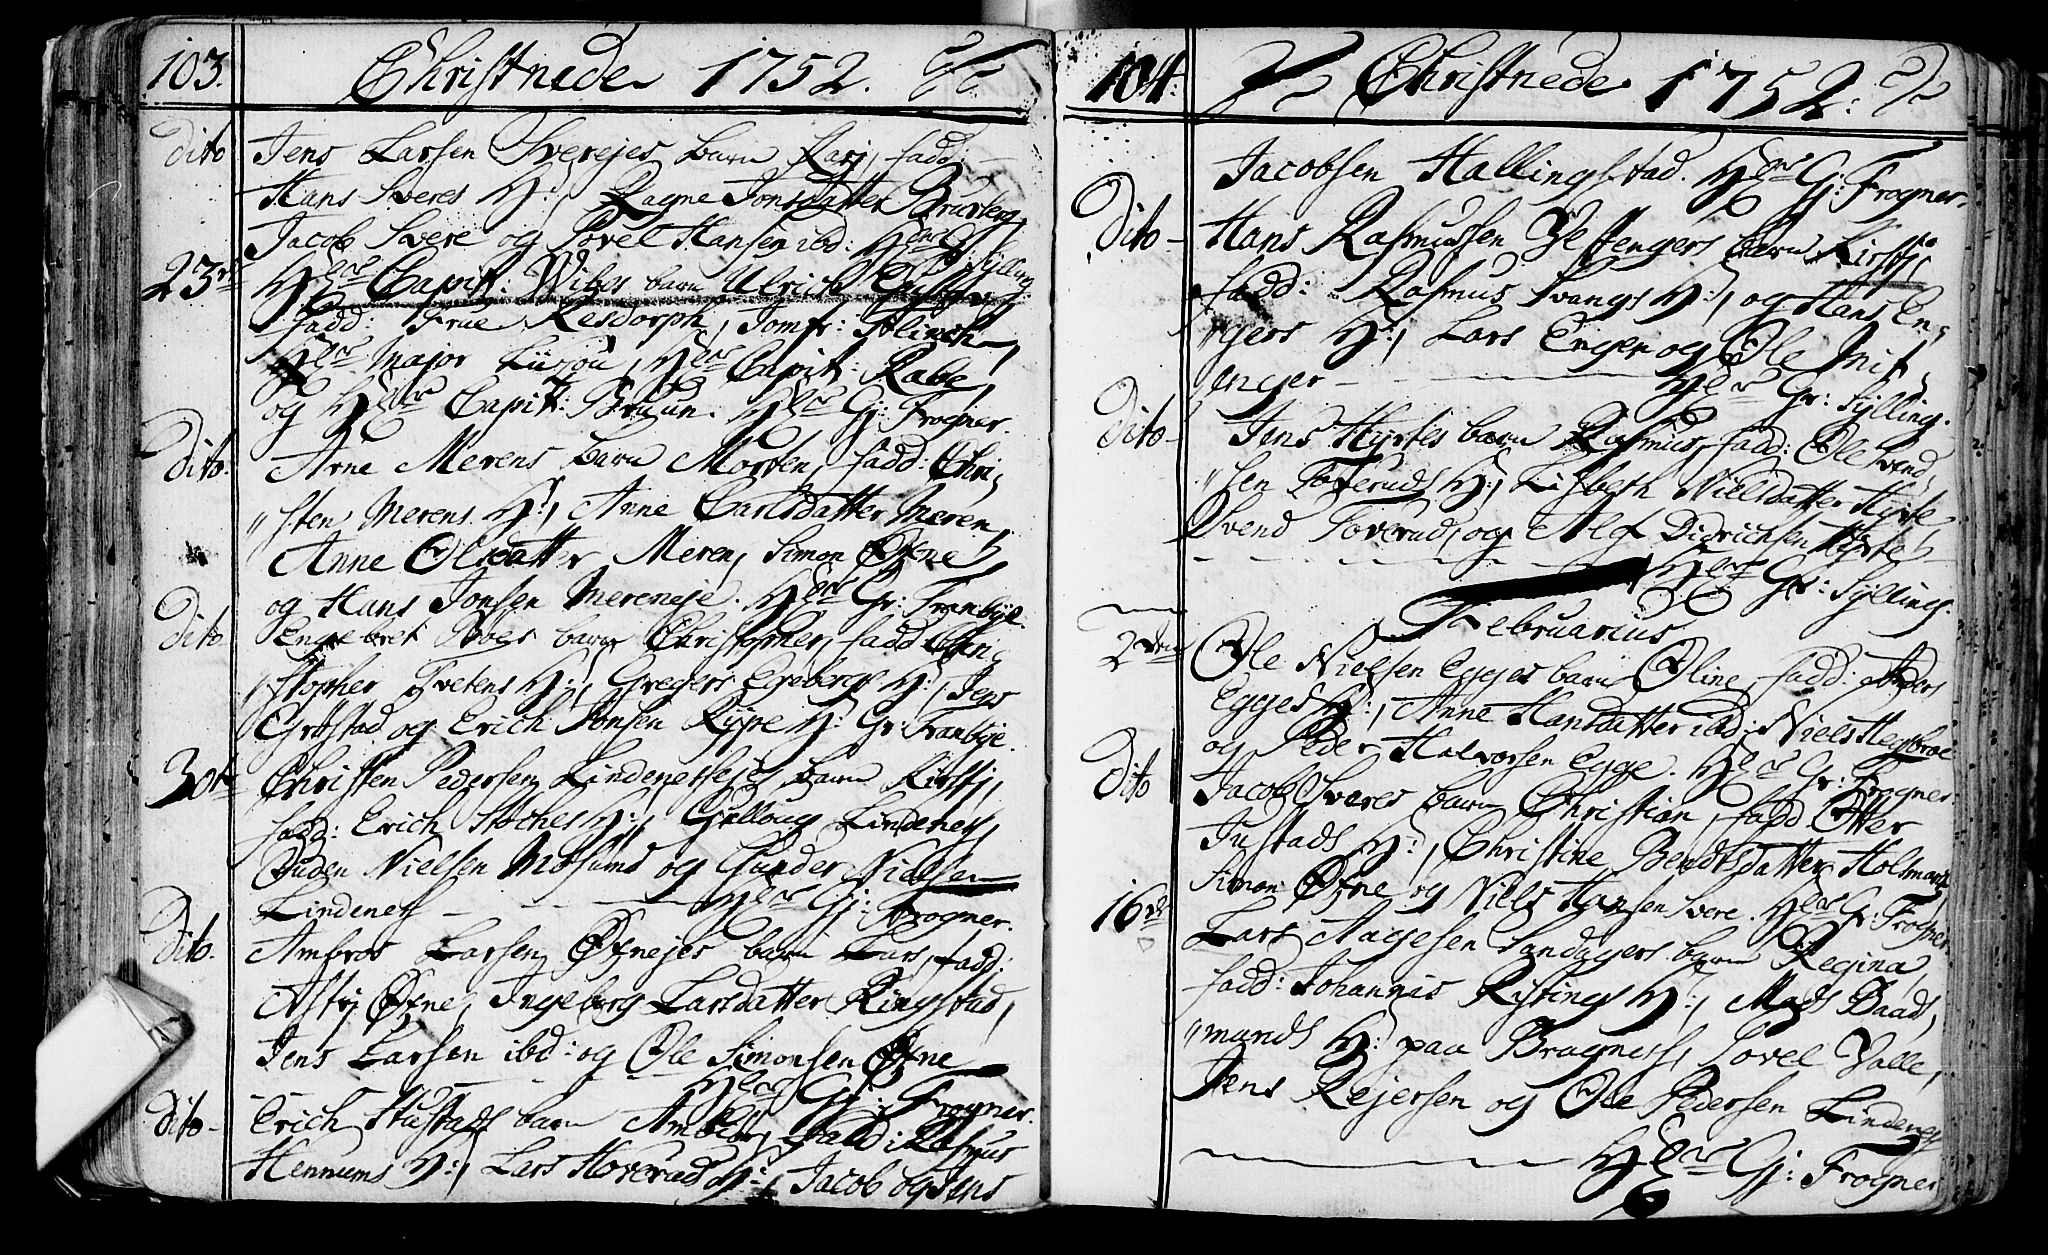 103. Christnede 1752.
dito Jens Larsen Sverejes barn Karj, fadd:
Hans Sveres H:, Ragne Jonsdatter Brusberg,
Jacob Svere og Povel Hansen ibd: Her Gr: Sylling.
23de Her Capit: Wibes barn Ulrich
fadd: Frue Resdorph, Jomfr:
Her Major, Her Capit: Rabe,
og Her Capit: Bruun. Her Gj: Frogner.
dito. Arne Merens barn Morten, fadd: Chri,
"sten Merens H:, Anne Carlsdatter Meren,
Anne Olsdatter Meren, Simon Øfne,
og Hans Jonsen Mereneje. Her Gr: Tranbye.
dito Engebret barn Christopher, fadd: Chri,
"stopher Tvetens H:, Gregers Egebergs H:, Jens
Grøstad og Erich Jonsen Rype H: Gr: Tranbye.
30te Christen Pedersen Lindenessejes barn Kirstj,
fadd: Erich Stochesk H:, Gulloug Lindenes,
Ouden Nielsen Mosumd og Gunder Nielsen
Lindenes - - - Her Gj: Frogner.
dito. Ambros Larsen Øfnejes barn Lars, fadd:
Øfne, Ingeborg Larsdatter Ringstad,
Jens Larsen ibd: og Ole Simonsen Øfne
Her Gj: Frogner.
dito- Erich Stustads barn, fadd: Rasmus
Hennums H:, Lars Hoveruds H:, Jacob og Jens
104: Christnede 1752:
Jacobsen Hallingstad. Her Gj: Frogner.
Dito- Hans Rasmussen Vestengers barn Kirstj,
fadd: Rasmus Svangs H:, og Hans En,
"gers H:, Lars Engen og Ole Mit,
enger - - - Her Gr: Sylling.
dito- Jens Hyrtes barn Rasmus, fadd: Ole Svend,
"sen Toveruds H:, Lisbeth Nielsdatter Hyrte
Svend Toverud, og Alf Didrichsen Hyrte
- - - Her Gr: Sylling.
Februarius
2den Ole Nielsen Egges barn Oline, fadd: Anders
Egges H:, Anne Hansdatter ibd: Niels Hegbroe
og Peder Halvorsen Egge. Her Gr: Frogner.
dito Jacob Sveres barn Christian, fadd Otter
Justads H:, Christine Bendtsdatter Holsmarch
Simon Øfne og Niels Hansen Svere. Her Gr: Frogner.
16de Lars Aagesen Sandagers barn Regina,
fadd: Johannis Ristings H:, Mads Baad,
"mands H: paa Bragness, Povel Valle,
Jens Rejersen og Ole Pedersen Lindenes
Her Gj: Frogner